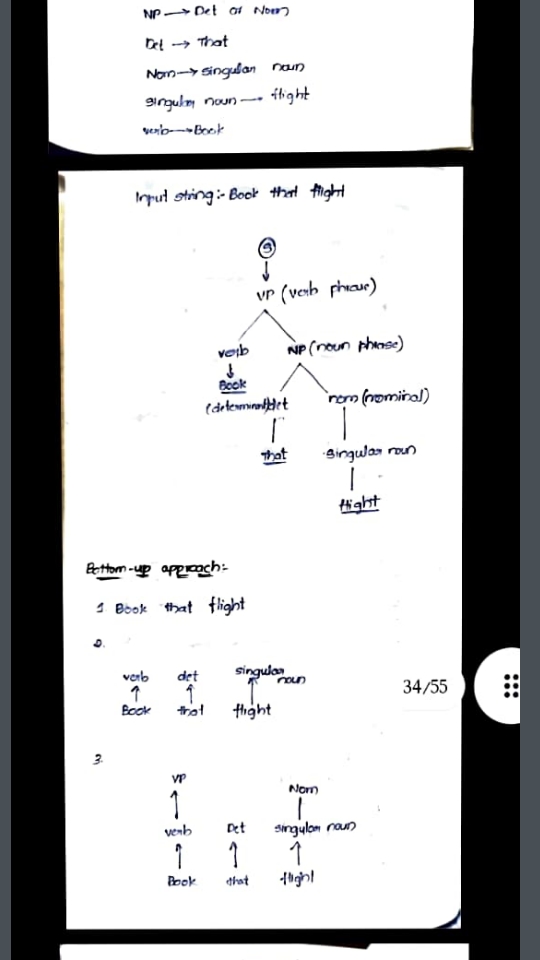 NP → Det or Nom
Det → That
Nom → singular noun
singular noun → flight
verb → Book
Input string:- Book that flight
S
VP (verb phrase)
verb NP (noun phrase)
Book
det nom (nominal)
That singular noun
flight
Bottom-up approach:-
1 Book that flight
2.
verb det singular noun
Book that flight
34/55
3.
VP
Nom
verb Det singular noun
Book that flight